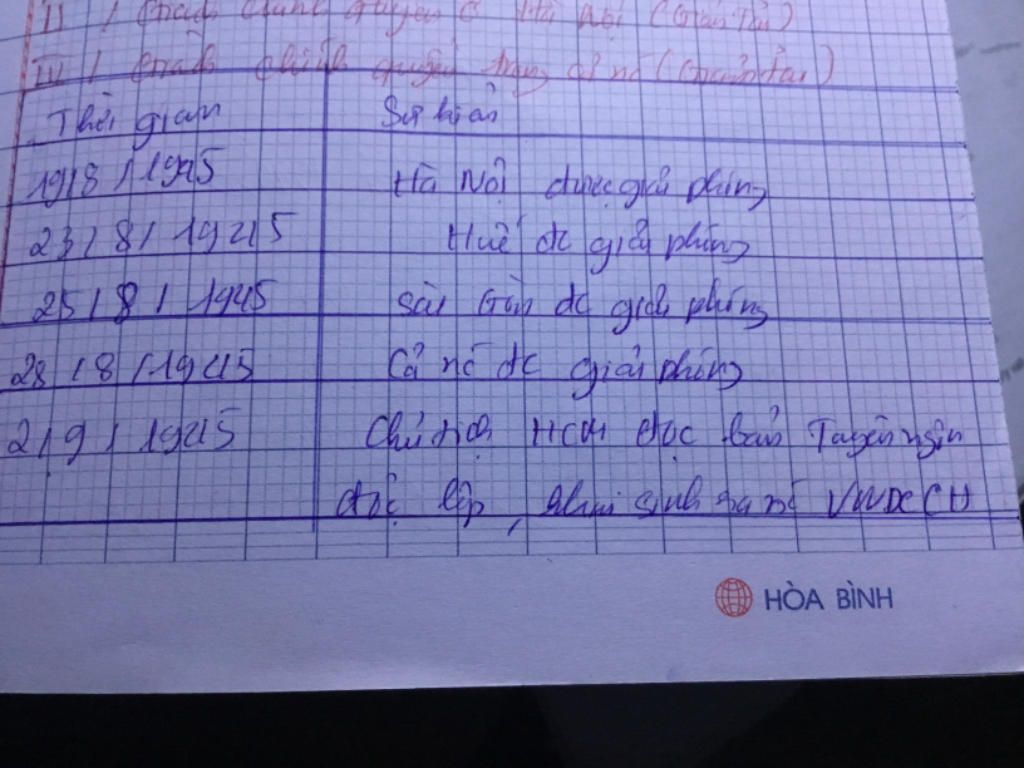 II / Giành chính quyền ở Hà Nội (Giản Tải)
III / Giành chính quyền trong cả nc (Giản tải)
Thời gian Sự kiện
19/8/1945 Hà Nội được giải phóng
23/8/1945 Huế đc giải phóng
25/8/1945 Sài Gòn đc giải phóng
28/8/1945 Cả nc đc giải phóng
2/9/1945 Chủ tịch HCM đọc bản Tuyên ngôn
độc lập, khai sinh ra nc VNDCCH
HÒA BÌNH